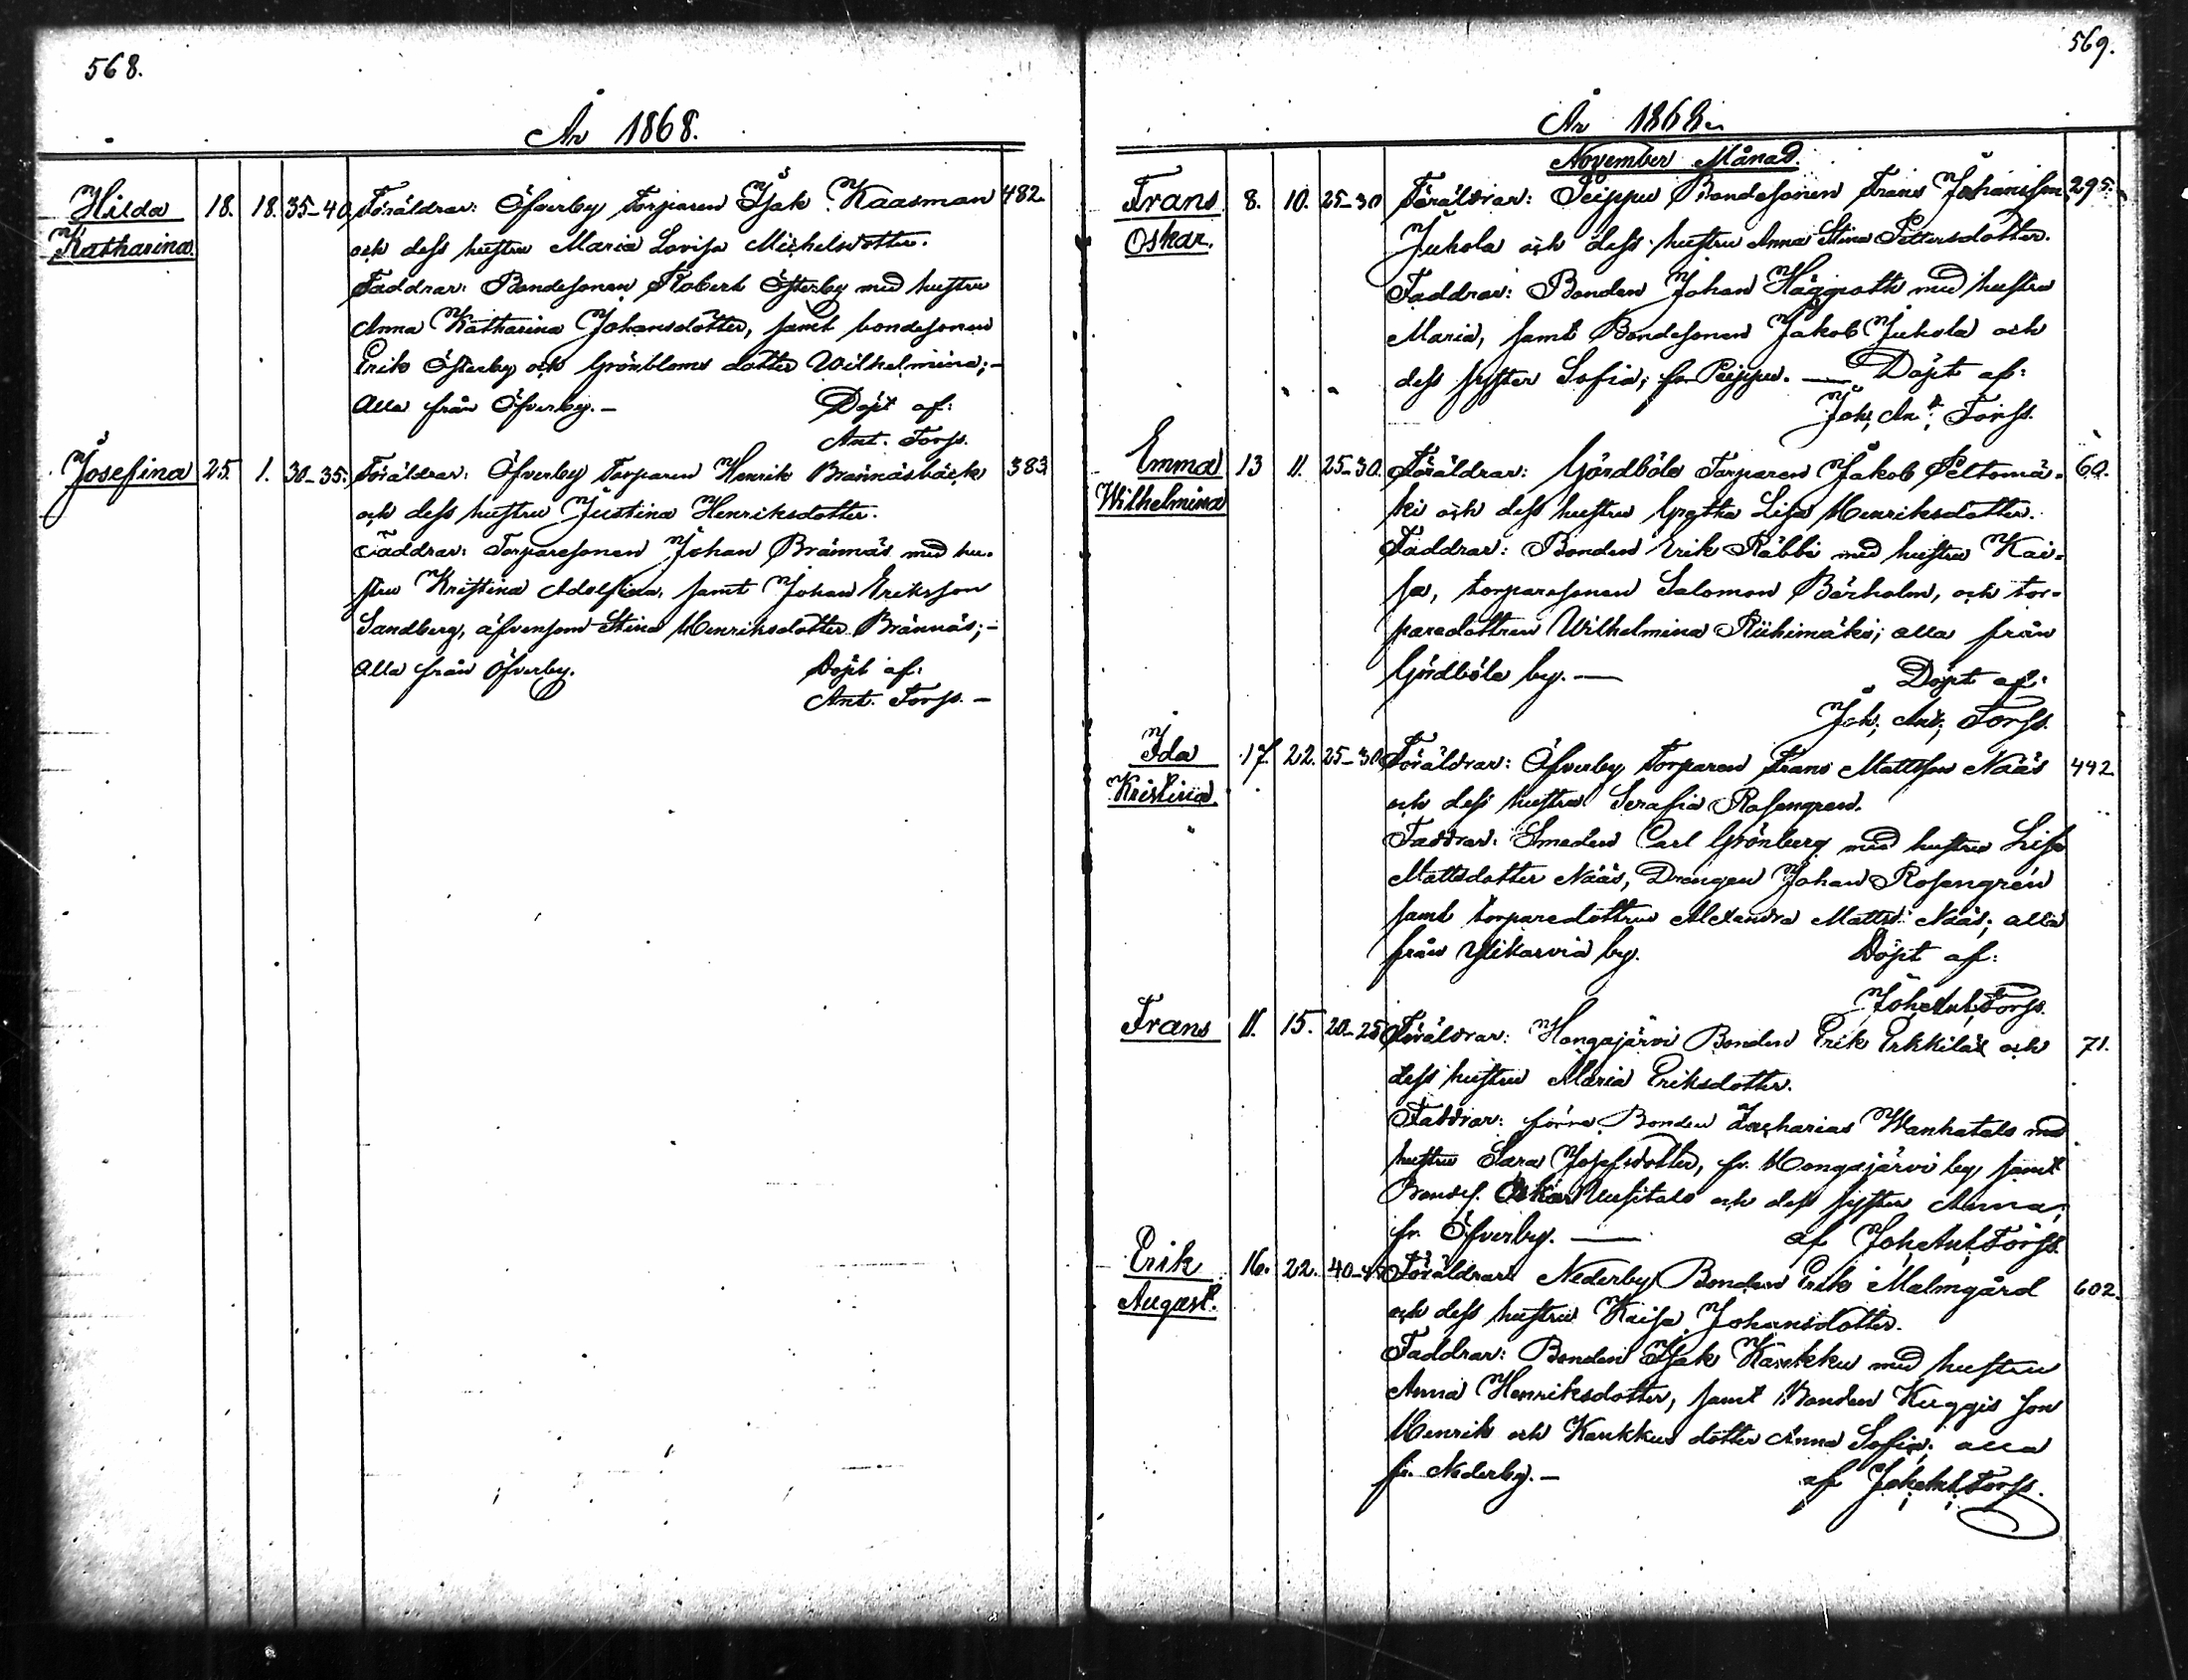 568.
År 1868.
Hilda 18. 18. 35-40 Föräldrar: Öfverby Torparen Isak Kaasman 482.
Katharina. och dess hustru Maria Lovisa Michelsdotter.
Faddrar: Bondesonen Robert Österby med hustru
Anna Katharina Johansdotter, samt bondesonen
Erik Österby och Grönbloms dotter Wilhelmina;-
Alla från Öfverby.- Döpt af:
Ant. Forss.
Josefina 25. 1. 30-35. Föräldrar: Öfverby Torparen Henrik Brännäsbäck 383.
och dess hustru Justina Henriksdotter.
Faddrar: Torparesonen Johan Brännäs med hu-
stru Kristina Adolfina, samt Johan Eriksson
Sandberg, äfvensom Stina Henriksdotter Brännäs;-
Alla från Öfverby. Döpt af:
Ant. Forss. -
569.
År 1868.
November Månad.
Frans 8. 10. 25-30 Föräldrar: Peippu Bondesonen Frans Johansson 295.
Oskar. Jukola och dess hustru Anna Stina Pettersdotter.
Faddrar: Bonden Johan Häggroth med hustru
Maria, samt Bondesonen Jakob Jukola och
dess syster Sofia; fr. Peippu. — Döpt af:
Joh; An:t; Forss.
Emma 13 11. 25-30. Föräldrar: Gördböle Torparen Jakob Peltomä- 60.
Wilhelmina ki och dess hustru Gretha Lisa Henriksdotter.
Faddrar: Bonden Erik Räbbi med hustru Kai-
sa, torparesonen Salomon Bärholm, och tor-
paredottren Wilhelmina Riihimäki; alla från
Gördböle by. — Döpt af:
Joh; Ant; Forss.
Ida 17. 22. 25-30 Föräldrar: Öfverby Torparen Frans Mattsson Nääs 442
Kristina. och dess hustru Serafia Rosengren.
Faddrar: Smeden Carl Grönberg med hustru Lisa
Mattsdotter Nääs, Drengen Johan Rosengrén
samt torparedottren Alexandra Matts: Nääs; alla
från Ytikarvia by. Döpt af:
Joh; Ant; Forss.
Frans 11. 15. 20-25 Föräldrar: Hongajärvi Bonden Erik Erkkilä och 71.
dess hustru Maria Eriksdotter.
Faddrar: förra Bonden Zacharias Wanhatalo med
hustru Sara Josefsdotter, fr. Hongajärvi by samt
Bondes. Oskar Uusitalo och dess syster Anna;
fr. Öfverby. — af Joh; Ant; Forss.
Erik 16. 22. 40-45 Föräldrar: Nederby Bonden Erik Malmgård 602.
August. och dess hustru Kaisa Johansdotter.
Faddrar: Bonden Isak Karkku med hustru
Anna Henriksdotter, samt Bonden Kuggis son
Henrik och Karkkus dotter Anna Sofia; alla
fr. Nederby. - af Joh; Ant; Forss.